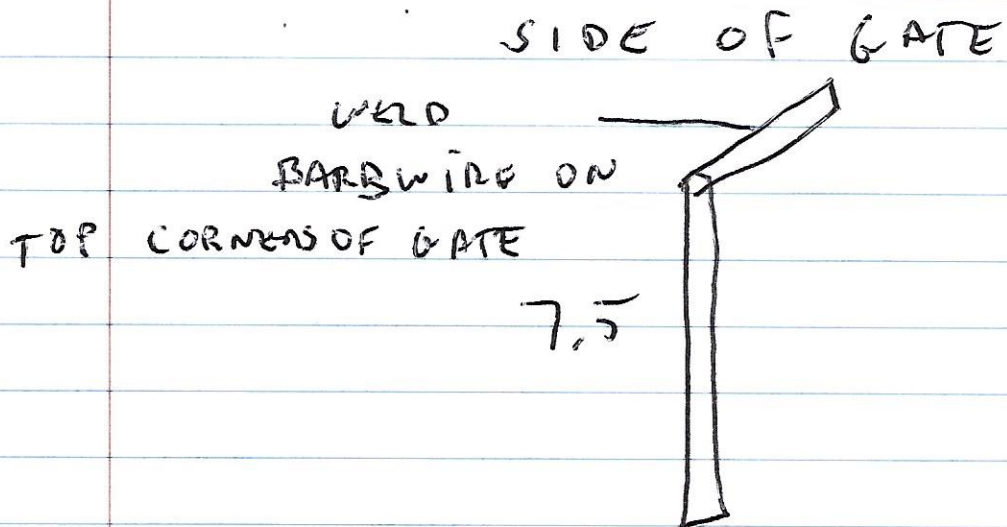 SIDE OF GATE
WELD
BARBWIRE ON
TOP CORNERS OF GATE
7.5